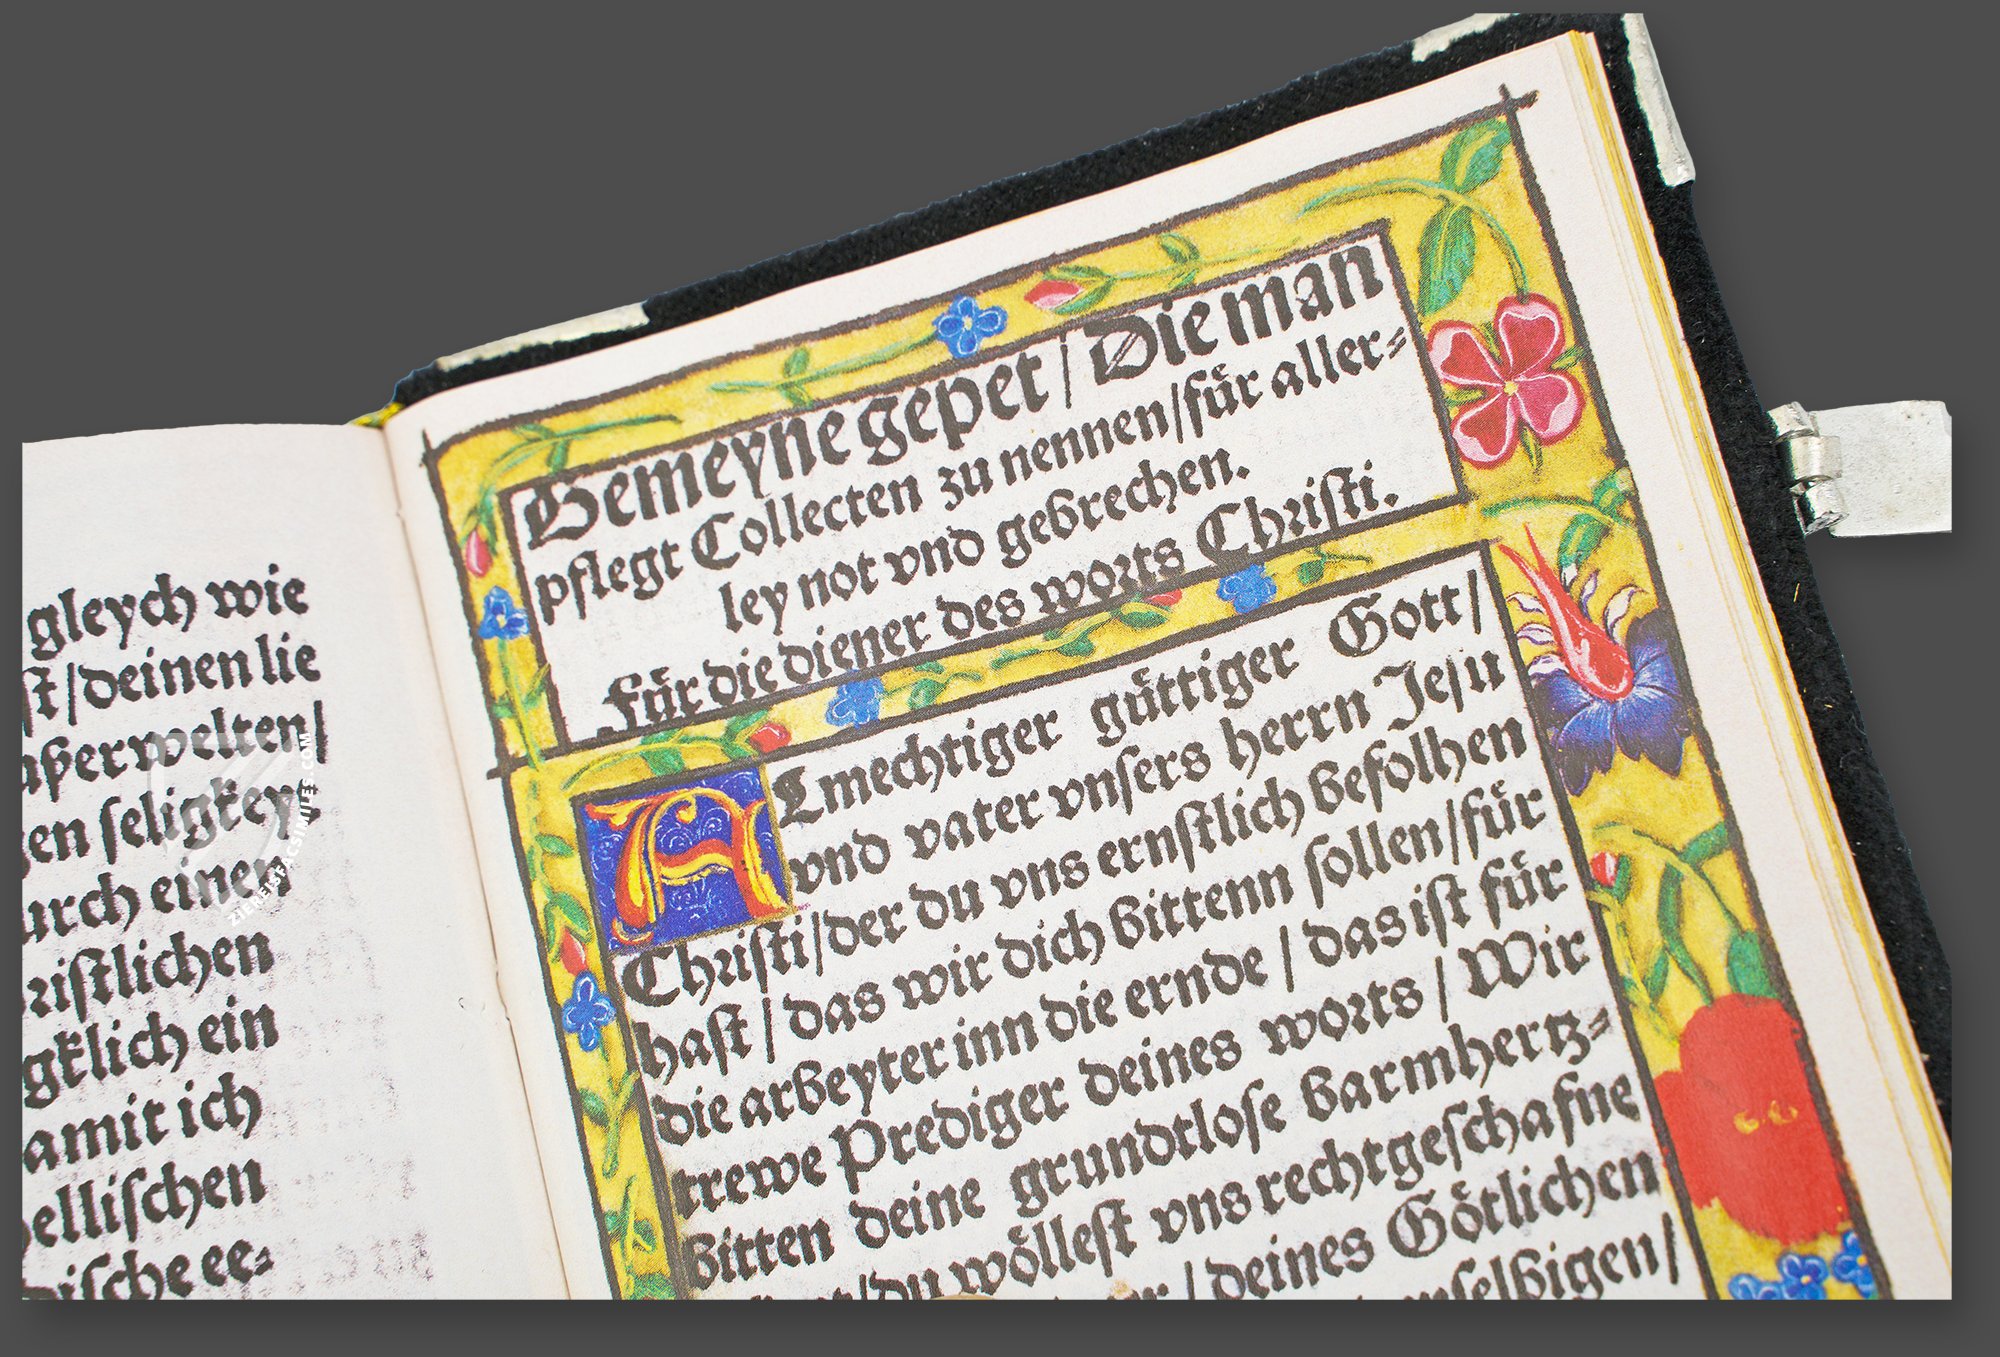 gleych wie
/deinen lie
aßerwelten/
en seligkeyt
durch einen
christlichen
ein
damit ich
ee⸗
ZIEREIS FACSIMILES.COM
Gemeyne gepet / Die man
pflegt Collecten zu nennen/für aller⸗
ley not vnd gebrechen.
Für die diener des worts Christi.
ALmechtiger güttiger Gott/
vnd vater vnsers herrn Jesu
Christi/der du vns ernstlich befolhen
hast / das wir dich bittenn sollen/für
die arbeyter inn die ernde / das ist für
trewe Prediger deines worts / Wir
bitten deine grundtlose barmhertz⸗
/du wöllest vns rechtgeschafne
/ deines Götlichen
selbigen/